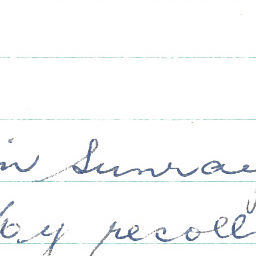 in Sunray
by recoll